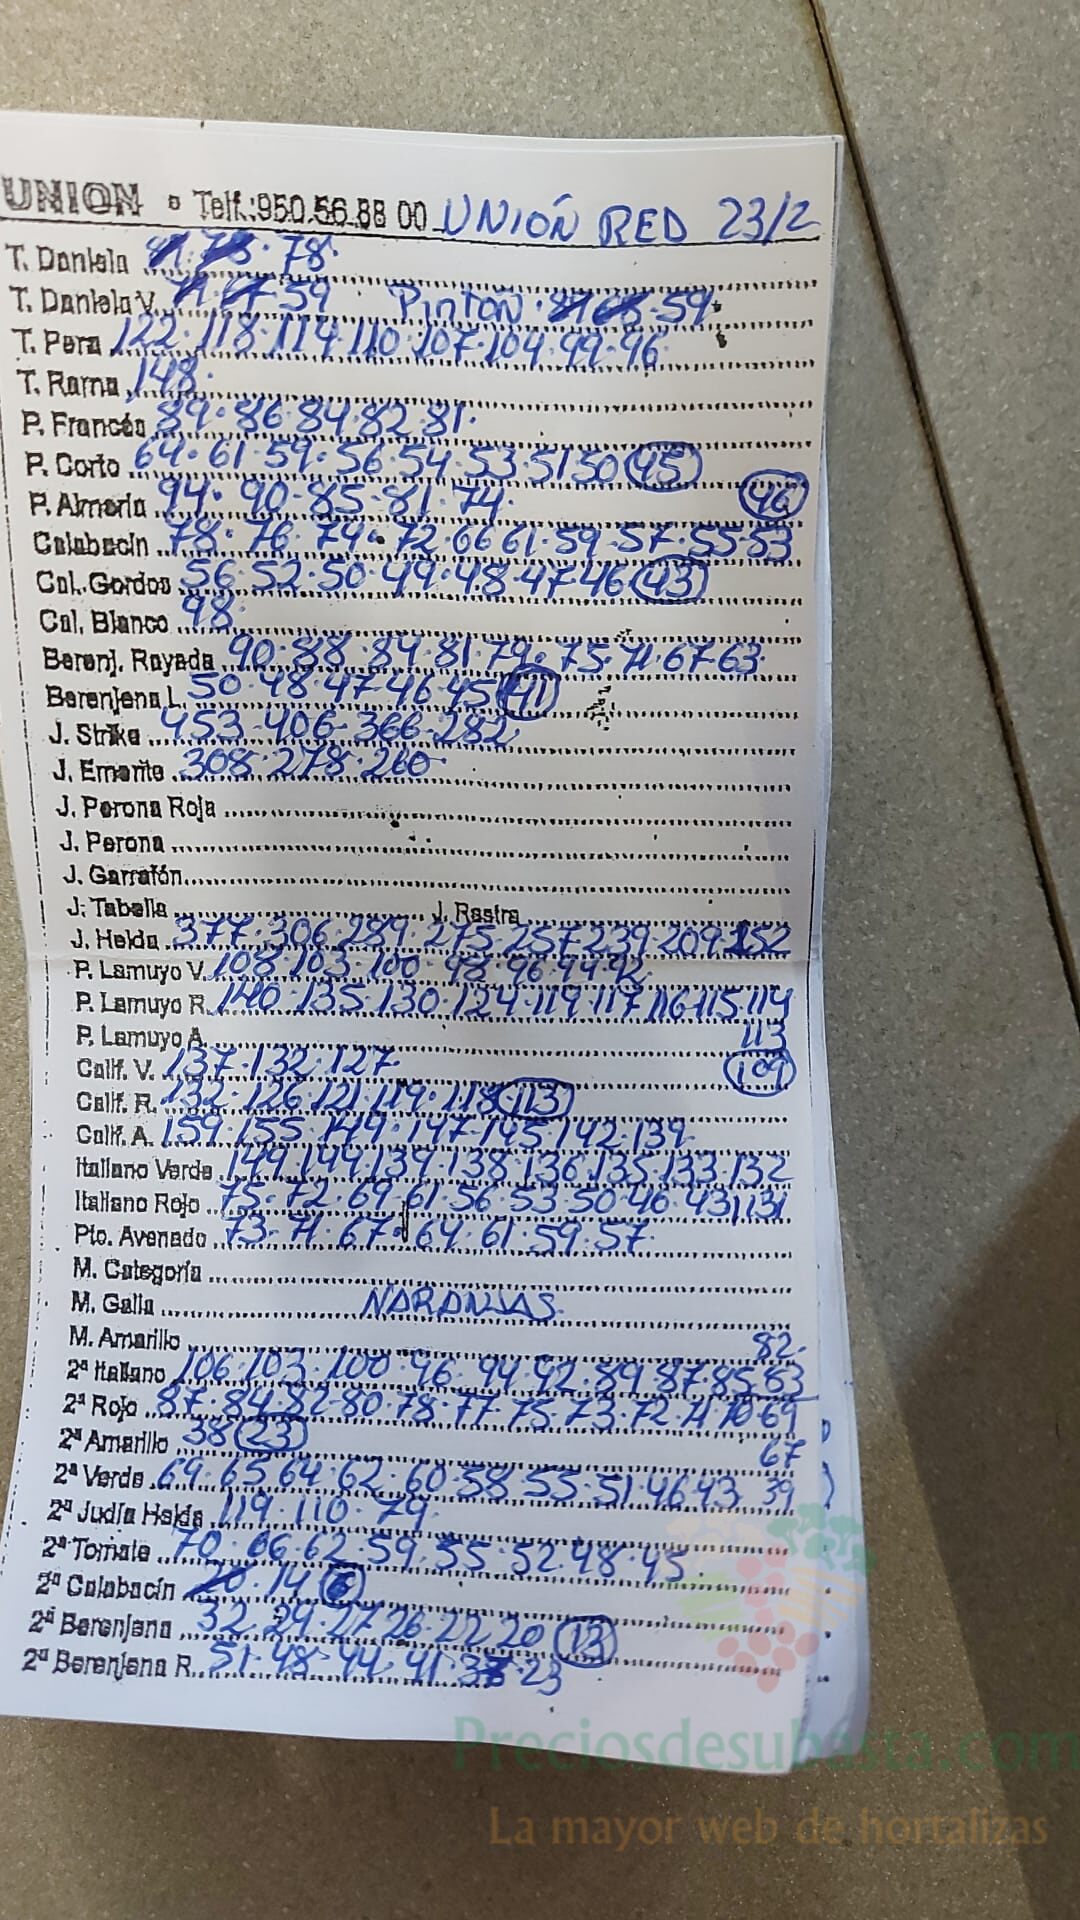 UNION Telf.:950.56.88 00 UNIÓN RED 23/2
T. Daniela 78.
T. Daniela V. 59 Pintoñ 59
T. Pera 122.118.114.110.107.104.99.96
T. Rama 148.
P. Francés 89.86.84.82.81.
P. Corto 64.61.59.56.54.53.51 50 45
P. Almería 94.90.85.81.74. 46
Calabacín 78.76.74.72.66 61.59.57.55.53
Cal. Gordos 56.52.50.49.48.47 46 43
Cal. Blanco 98
Berenj. Rayada 90.88.84.81.79.75.71.67 63
Berenjena L. 50.48.47.46.45 41
J. Strike 453.406.366.282
J. Emerite 308.278.260
J. Perona Roja
J. Perona
J. Garrafón
J. Tabella J. Rastra
J. Helda 377.306.289.275.257 239.209.152
P. Lamuyo V. 108.103.100.98.96.94.92
P. Lamuyo R. 140.135.130.124.119.117 116.115.114
P. Lamuyo A. 113
Calif. V. 137.132.127 109
Calif. R. 132.126.121.119.118 113
Calif. A. 159.155.149.147.145.142.139
Italiano Verde 149 144 139.138.136.135.133.132
Italiano Rojo 75.72.69.61.56.53.50.46.43 131
Pto. Avenado 73.71.67.64.61.59.57
M. Categoría
M. Galia NARANJAS
M. Amarillo 82.
2ª Italiano 106.103.100.96.94.92.89.87.85.83
2ª Rojo 87.84.82.80.78.77.75.73.72.71 70 69
2ª Amarillo 38 23 67
2ª Verde 69.65 64.62.60.58.55.51.46 43 39
2ª Judía Helda 119.110.79
2ª Tomate 70.66.62.59.55.52.48.45
2ª Calabacín 14 6
2ª Berenjena 32.29.27 26.22 20 13
2ª Berenjena R. 51.48.44.41 23
Preciosdesubasta.com
La mayor web de hortalizas